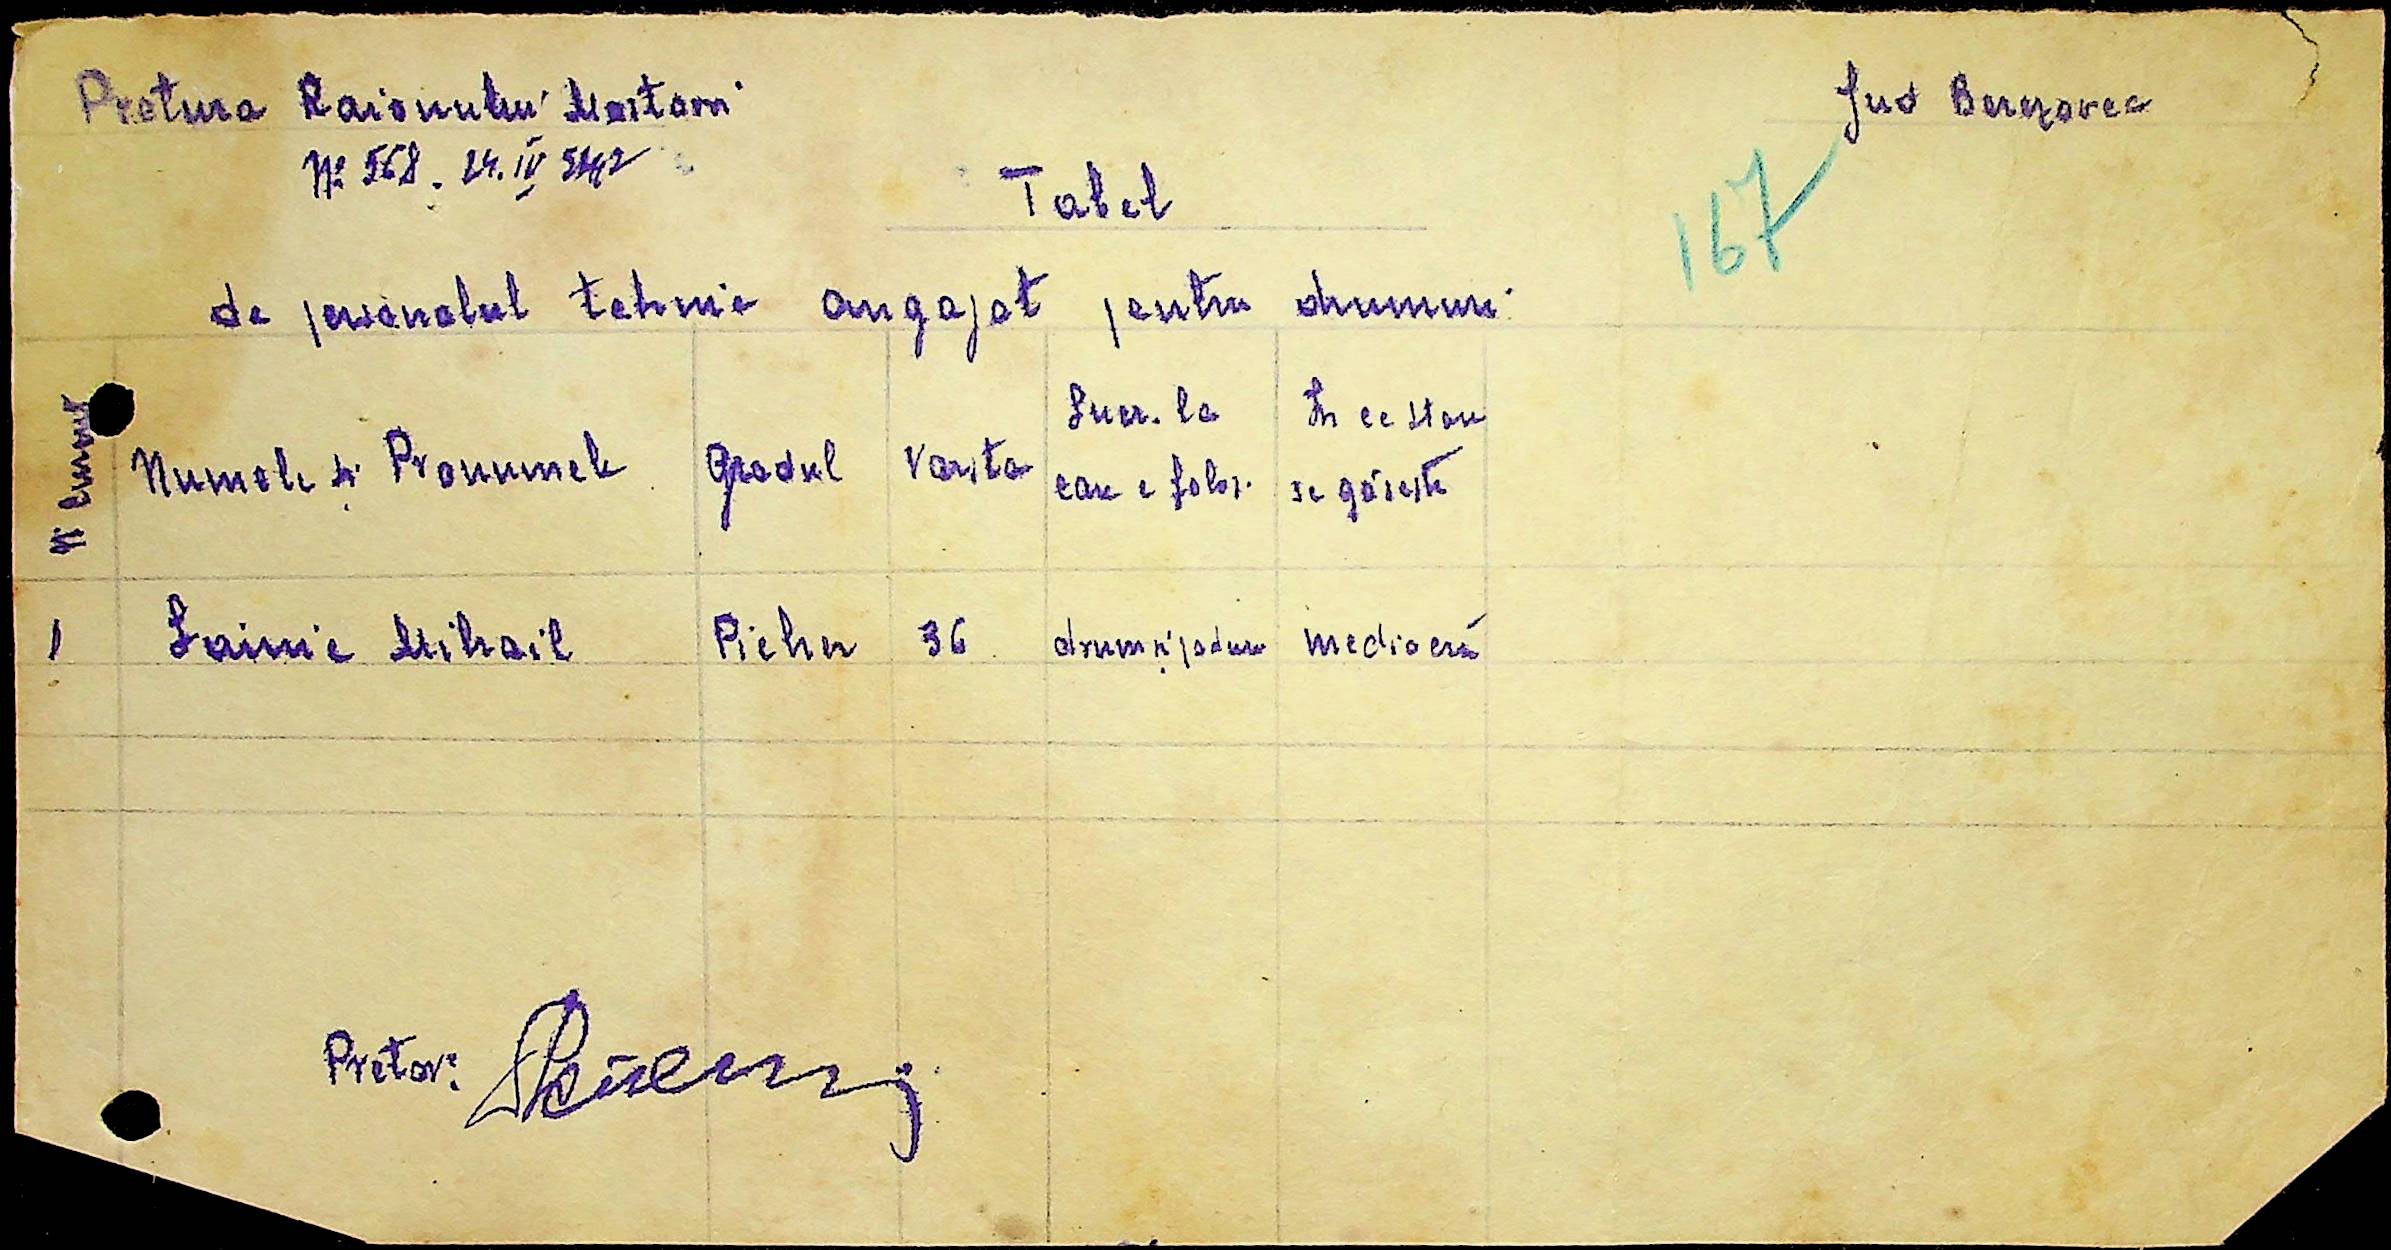 Pretura Raionului Mostovoi Jud Berezovca
№ 568. 24. IV 942
167
Tabel
de personalul tehnic angajat pentru drumuri
№ curent Numele și Pronumele Gradul Varsta Lucr. la care e folos. In ce stare se găsește
1 Lainic Mihail Picher 36 drum și podur mediocră
Pretor: